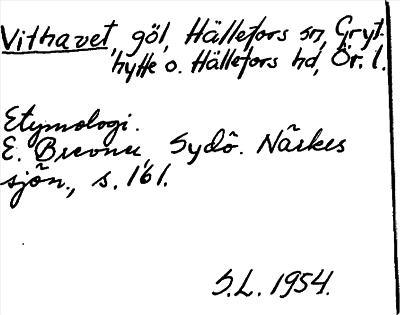 Vithavet, göl, Hällefors sn, Gryt-
hytte o. Hällefors hd, Ör. l.
Etymologi.
E. Brevner, Sydö. Närkes
sjön., s. 161.
S.L. 1954.